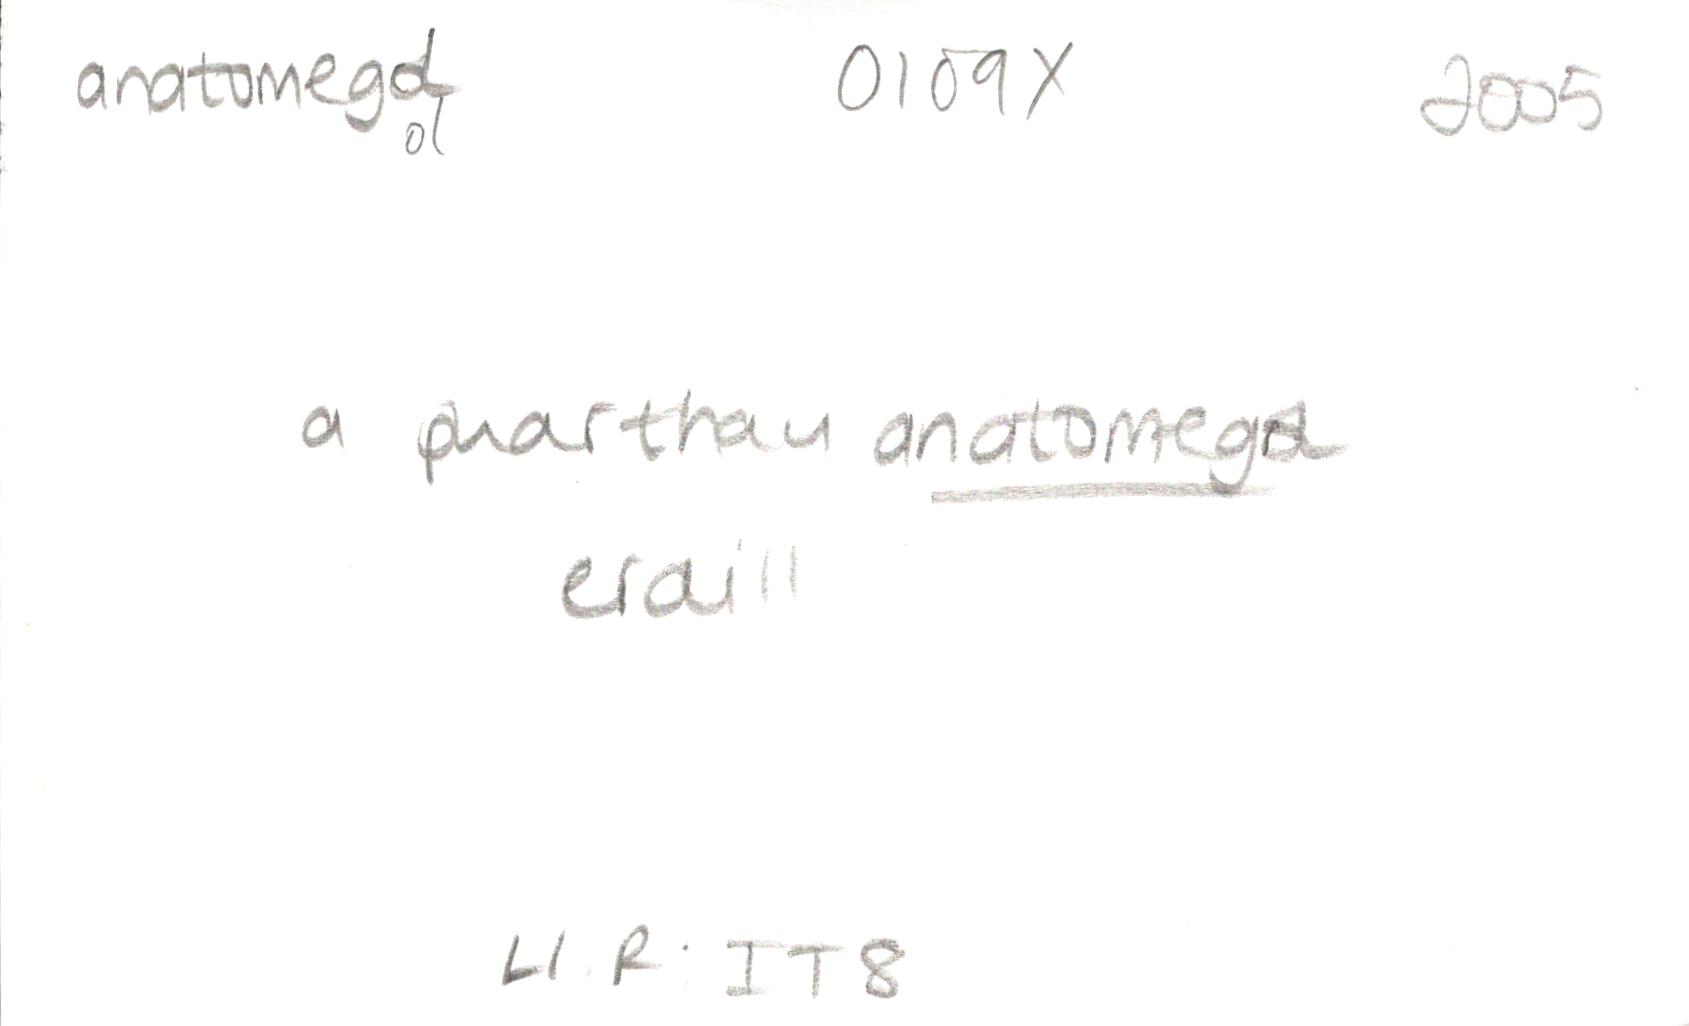 anatomegol 0109X 2005
a pharthau anatomegol
eraill
Ll. R: IT8